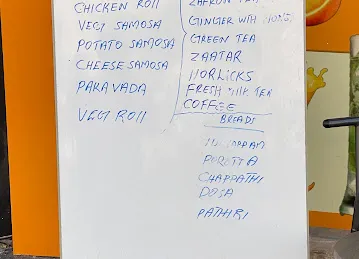 CHICKEN ROLL
VEGI SAMOSA
POTATO SAMOSA
CHEESE SAMOSA
PARA VADA
VEGI ROLL
ZAFRON TEA
GINGER WITH HONEY
GREEN TEA
ZAATAR
HORLICKS
FRESH MILK TEA
COFFEE
BREADS
POROTTA
CHAPPATHI
DOSA
PATHIRI